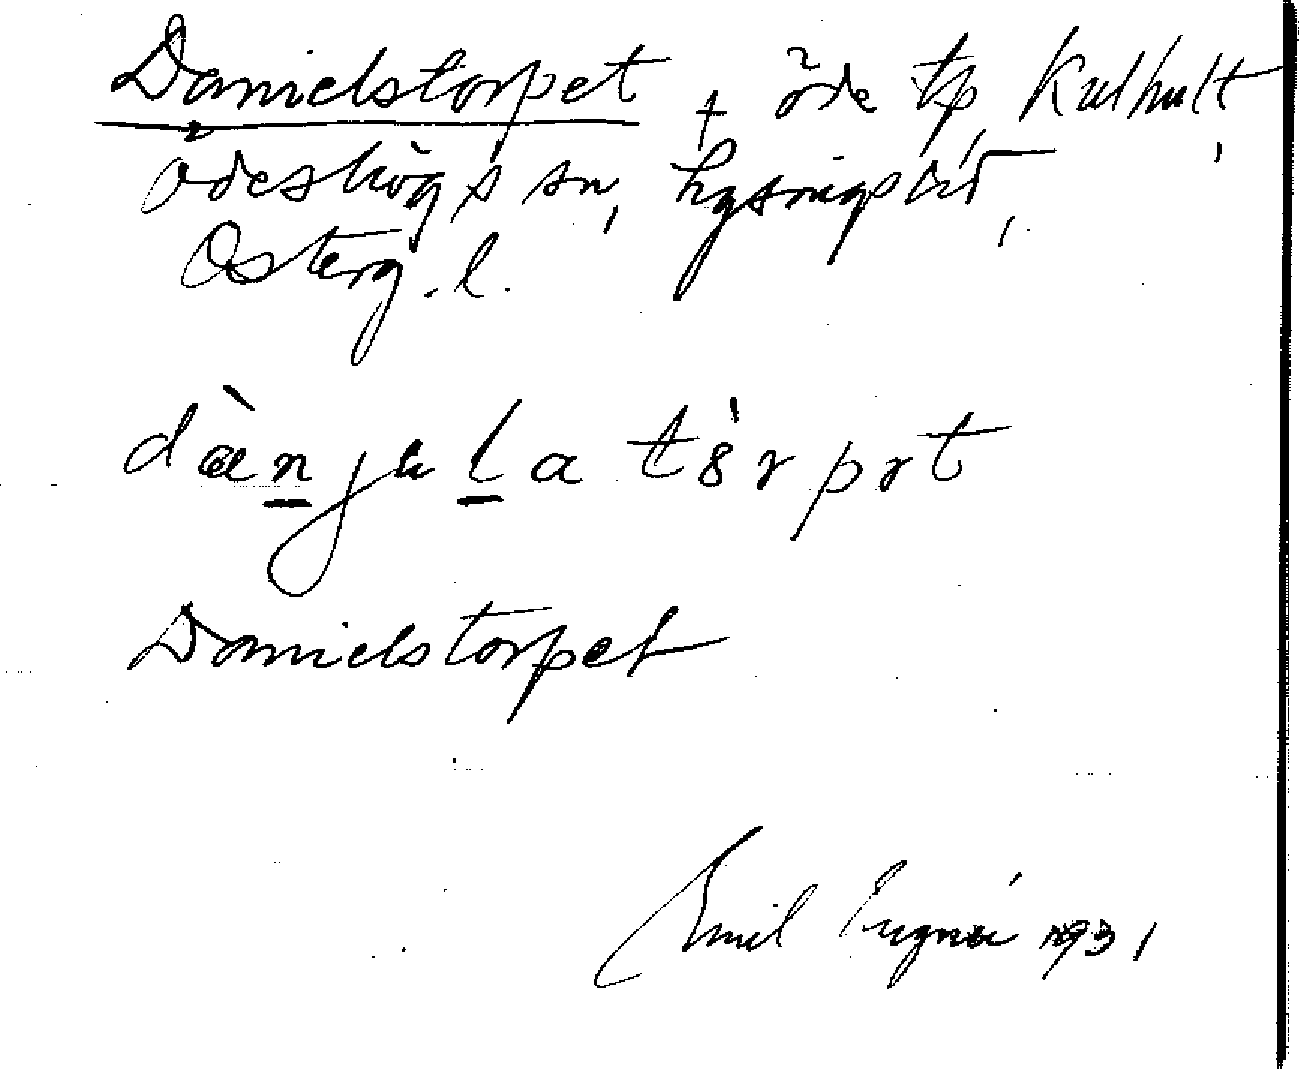 Danielstorpet, + öde tp, Kulhult,
Ödeshögs sn, Lysings hd,
Österg. l.
dànjelatörpət
Danielstorpet
Emil 1931